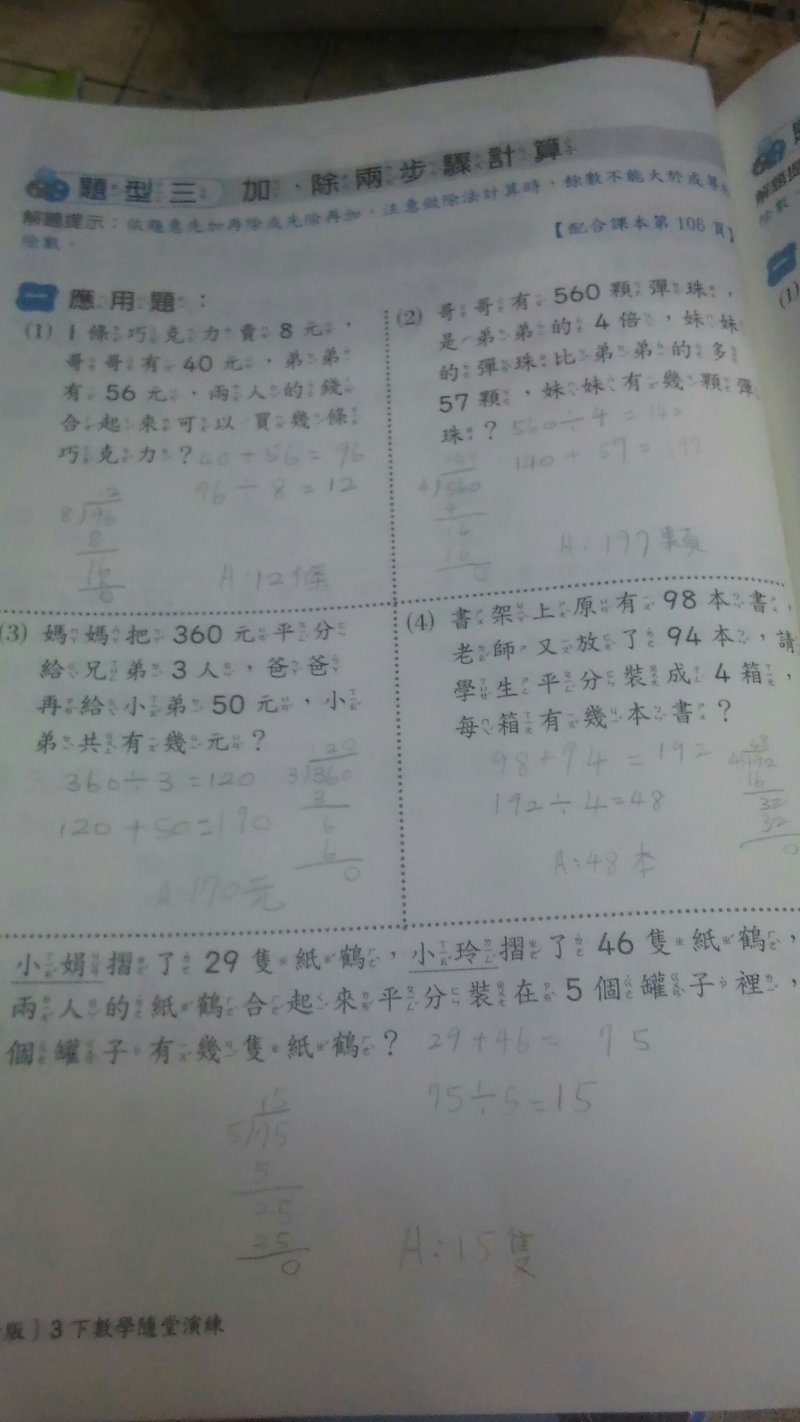 題型三 加、除兩步驟計算
解題提示：依題意先加再除或先除再加，注意做除法計算時，餘數不能大於或等
除數。
【配合課本第106頁】
一 應用題：
(1) 1條巧克力賣8元，
哥哥有40元，弟弟
有56元，兩人的錢
合起來可以買幾條
巧克力？40+56=96
96÷8=12
12
8)96
8
16
0
A:12條
(2) 哥哥有560顆彈珠，
是弟弟的4倍，妹妹
的彈珠比弟弟的多
57顆，妹妹有幾顆彈
珠？560÷4=140
140+57=197
140
4)560
4
16
16
0
A:197顆
(3) 媽媽把360元平分
給兄弟3人，爸爸
再給小弟50元，小
弟共有幾元？
360÷3=120
120+50=170
120
3)360
3
6
6
0
A:170元
(4) 書架上原有98本書，
老師又放了94本，請
學生平分裝成4箱，
每箱有幾本書？
98+94=192
192÷4=48
48
4)192
16
32
32
0
A:48本
小娟摺了29隻紙鶴，小玲摺了46隻紙鶴，
兩人的紙鶴合起來平分裝在5個罐子裡，
個罐子有幾隻紙鶴？29+46=75
75÷5=15
15
5)75
5
25
25
0
A:15隻
版〕3下數學隨堂演練